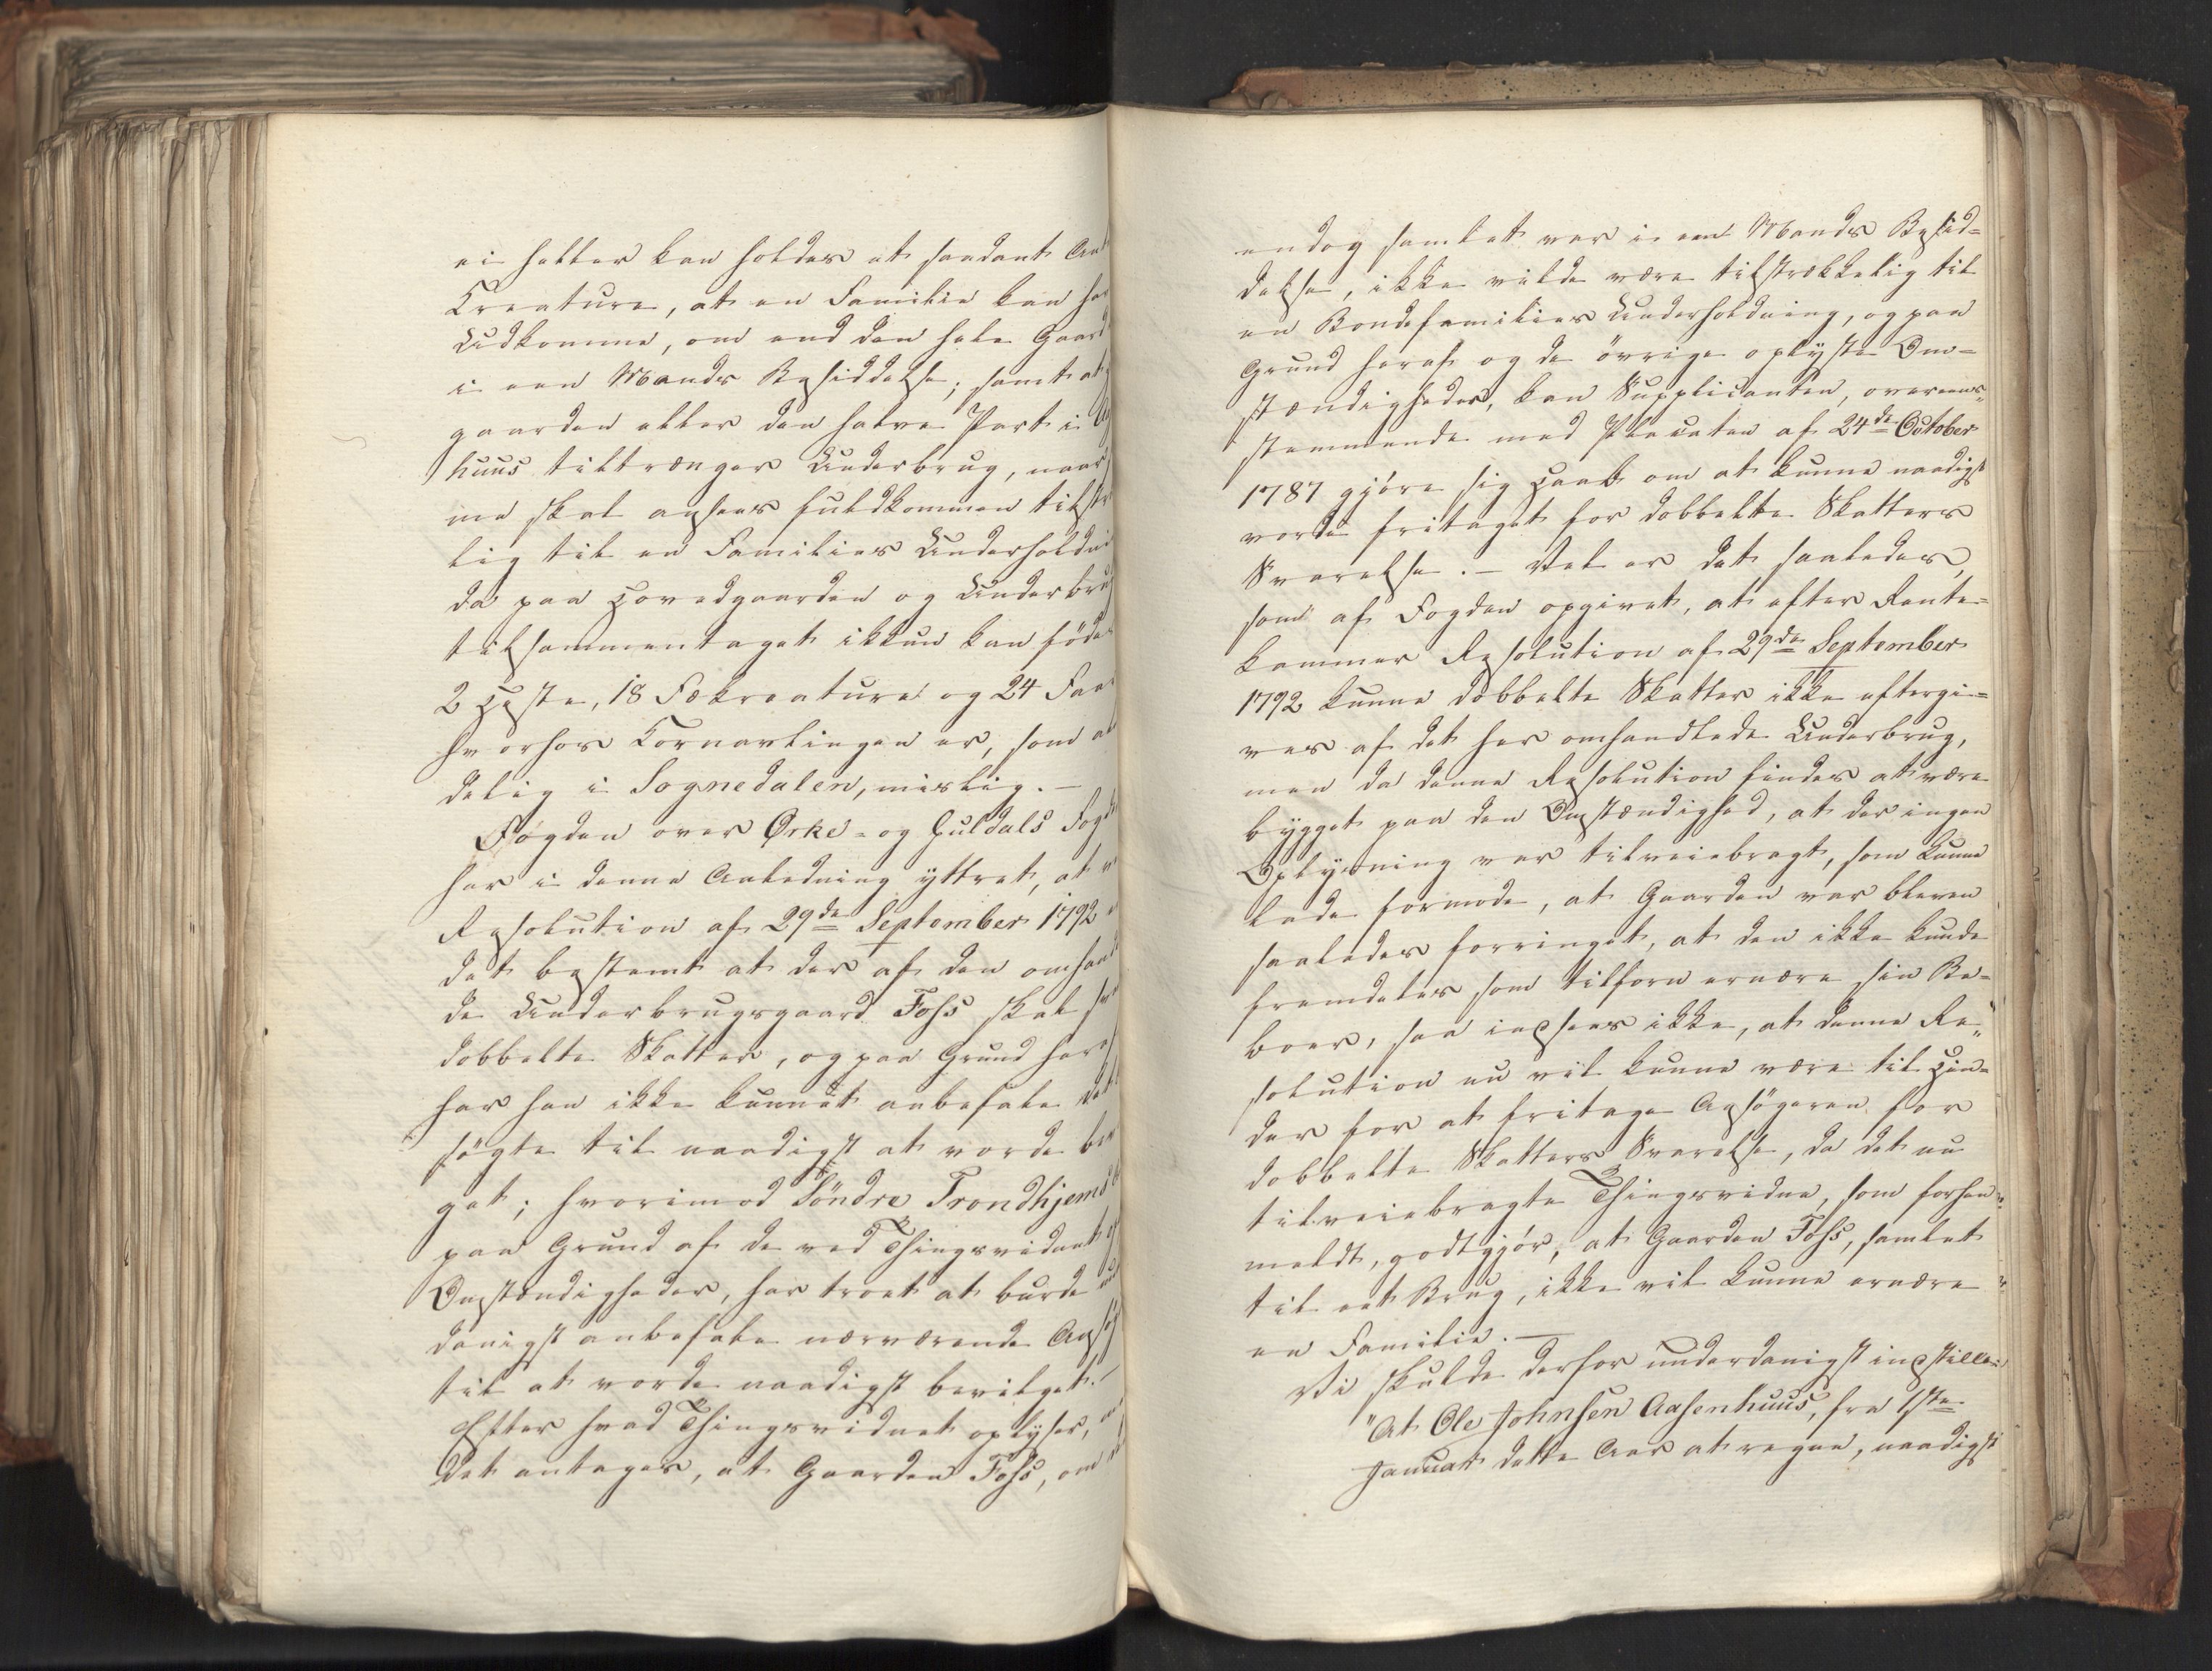 ei heller kan holdes et saadant
Creature, at en Familie kan
Udkomme, om end den hele Gaard
i een Mands Besiddelse; samt at
gaarden eller den halve Part i
huus tiltrænger Underbrug, naar
me skal ansees fuldkommen tilstr
lig til en Families Underholdni
da paa Hovedgaarden og Underbru
tilsammentaget ikkun kan föde
2 Heste, 18 Fækreature og 24 Faa
hvorhos Kornavlingen er, som
delig i Sognedalen, mislig. —
Fogden over Orke- og Guldals Fogd
har i denne Anledning yttret, at
Resolution af 29de September 1792
det bestemt at der af den omhand
de Underbrugsgaard Foss skal
dobbelte Skatter, og paa Grund heraf
har han ikke kunnet anbefale det
søgte til naadigst at vorde
get; hvorimod Söndre Trondhjems
paa Grund af de ved Thingsvidnet
Omstændigheder, har troet at burde
danigst anbefale nærværende Ansög
til at vorde naadigst bevilget. —
Efter hvad Thingsvidnet oplyser,
det antages, at Gaarden Foss, om
endog samlet var i een Mands Besid-
delse, ikke vilde være tilstrækkelig til
en Bondefamilies Underholdning, og paa
Grund heraf og de övrige oplyste Om-
stændigheder, kan Supplicanten, overeens-
stemmende med Placaten af 24de October
1787 gjöre sig Haab om at kunne naadigst
vorde fritaget for dobbelte Skatters
Svarelse. — Vel er det saaledes,
som af Fogden opgivet, at efter Rente-
kammer Resolution af 29de September
1792 kunne dobbelte Skatter ikke eftergi-
ves af det her omhandlede Underbrug,
men da denne Resolution findes at være
bygget paa den Omstændighed, at der ingen
Oplysning var tilveiebragt, som kunne
lade formode, at Gaarden var bleven
saaledes forringet, at den ikke kunde
fremdeles som tilforn ernære sin Be-
boer, saa indsees ikke, at denne Re-
solution nu vil kunne være til Hin-
der for at fritage Ansögeren for
dobbelte Skatters Svarelse, da det nu
tilveiebragte Thingsvidne, som forhen
meldt, godtgjör, at Gaarden Foss, samlet
til eet Brug, ikke vil kunne ernære
en Familie. —
Vi skulde derfor underdanigst indstille:
"At Ole Johnsen Aasenhuus, fra 1ste
Januar dette Aar at regne, naadigst